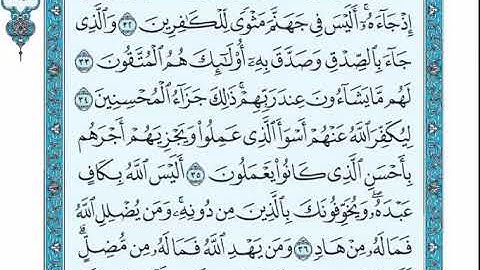 إِذْ جَآءَهُۥٓ ۚ أَلَيْسَ فِى جَهَنَّمَ مَثْوًى لِّلْكَـٰفِرِينَ ٣٢ وَٱلَّذِى
جَآءَ بِٱلصِّدْقِ وَصَدَّقَ بِهِۦٓ ۙ أُو۟لَـٰٓئِكَ هُمُ ٱلْمُتَّقُونَ ٣٣
لَهُم مَّا يَشَآءُونَ عِندَ رَبِّهِمْ ۚ ذَٰلِكَ جَزَآءُ ٱلْمُحْسِنِينَ ٣٤
لِيُكَفِّرَ ٱللَّهُ عَنْهُمْ أَسْوَأَ ٱلَّذِى عَمِلُوا۟ وَيَجْزِيَهُمْ أَجْرَهُم
بِأَحْسَنِ ٱلَّذِى كَانُوا۟ يَعْمَلُونَ ٣٥ أَلَيْسَ ٱللَّهُ بِكَافٍ
عَبْدَهُۥ ۖ وَيُخَوِّفُونَكَ بِٱلَّذِينَ مِن دُونِهِۦ ۚ وَمَن يُضْلِلِ ٱللَّهُ
فَمَا لَهُۥ مِنْ هَادٍ ٣٦ وَمَن يَهْدِ ٱللَّهُ فَمَا لَهُۥ مِن مُّضِلٍّ ۗ